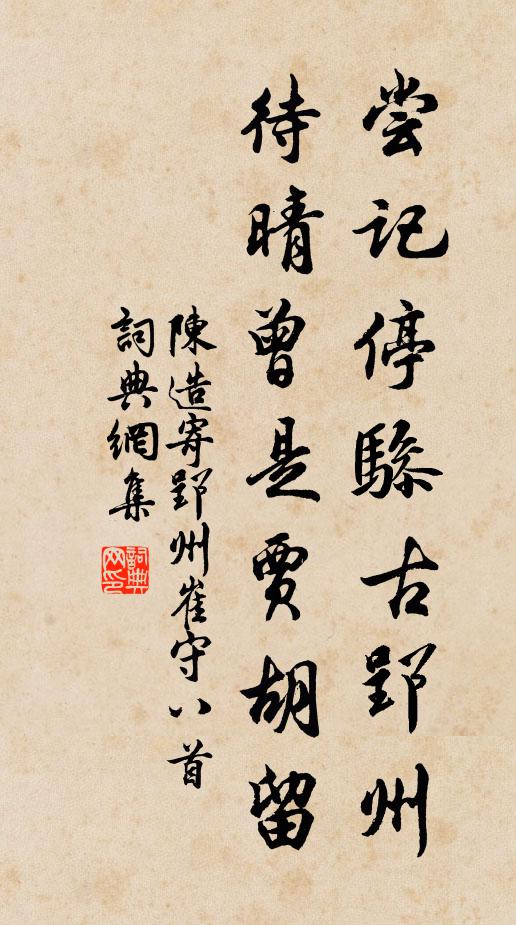 尝記停驂古郢州
待晴曾是賈胡留
陳造寄郢州崔守八首
詞典網集
詞典网印